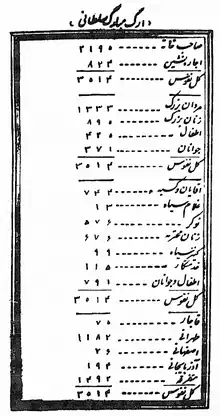 (ارگ مبارکه سلطانی)
صاحب خانه ۲۱۹۰
اجاره نشین ۸۲۴
کل نفوس ۳۰۱۴
مردان بزرگ ۱۳۳۳
زنان بزرگ ۸۹۰
اطفال ۴۲۰
جوانان ۳۷۱
کل نفوس ۳۰۱۴
آقایان و کسبه ۷۴۴
غلام سیاه ۱۳
نوکر ۵۷۶
زنان محترمه ۶۷۶
کنیز سیاه ۹۹
خدمتکار ۱۱۵
اطفال و جوانان ۷۹۱
کل نفوس ۳۰۱۴
قاجار ۷۰
طهرانی ۱۱۸۲
اصفهانی ۷۶
آذربایجانی ۱۹۴
متفرقه ۱۴۹۲
کل نفوس ۳۰۱۴